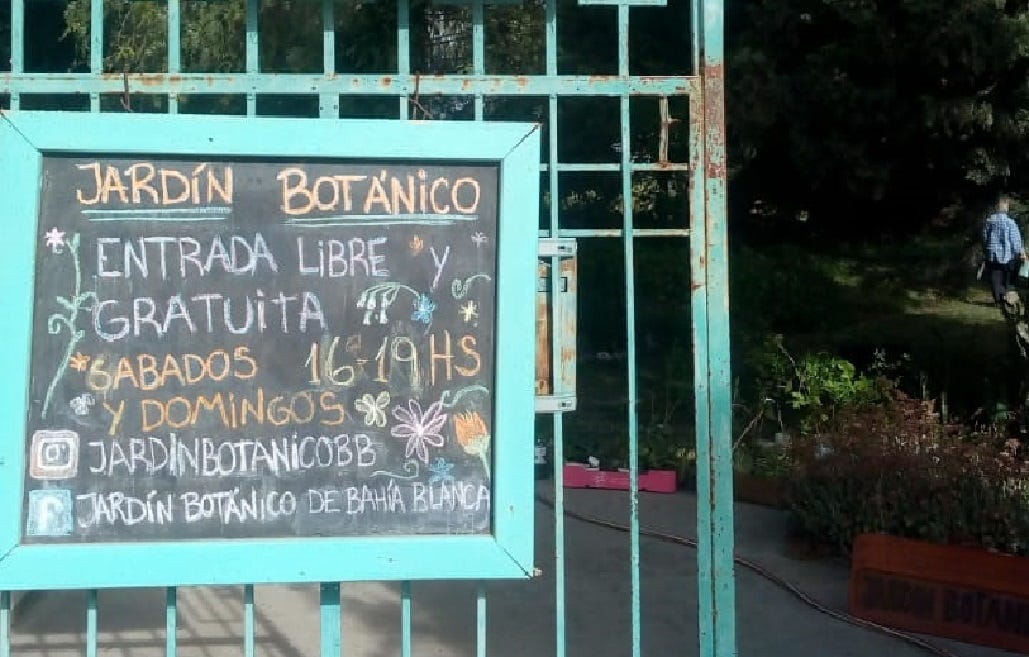 JARDÍN BOTÁNICO
ENTRADA LIBRE Y
GRATUITA
SABADOS 16 a 19 HS
Y DOMINGOS
JARDINBOTANICOBB
f JARDÍN BOTÁNICO DE BAHÍA BLANCA
JARDÍN BOTÁN